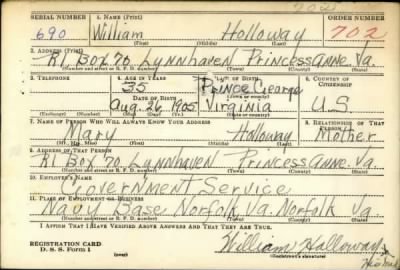 702
SERIAL NUMBER 1. NAME (Print) ORDER NUMBER
690 William Holloway 702
(First) (Middle) (Last)
2. ADDRESS (Print)
R1 Box 70 Lynnhaven Princess Anne. Va.
(Number and street or R. F. D. number) (Town) (County) (State)
3. TELEPHONE 4. AGE IN YEARS 5. PLACE OF BIRTH 6. COUNTRY OF CITIZENSHIP
35 Prince George
DATE OF BIRTH (Town or county)
Aug. 26, 1905 Virginia U S
(Mo.) (Day) (Yr.) (State or country)
7. NAME OF PERSON WHO WILL ALWAYS KNOW YOUR ADDRESS 8. RELATIONSHIP OF THAT PERSON
Mary Holloway Mother
(Mr., Mrs., Miss) (First) (Middle) (Last)
9. ADDRESS OF THAT PERSON
R1 Box 70 Lynnhaven Princess Anne. Va.
(Number and street or R. F. D. number) (Town) (County) (State)
10. EMPLOYER'S NAME
Government Service
11. PLACE OF EMPLOYMENT OR BUSINESS
Navy Base Norfolk Va. Norfolk Va.
(Number and street or R. F. D. number) (Town) (County) (State)
I AFFIRM THAT I HAVE VERIFIED ABOVE ANSWERS AND THAT THEY ARE TRUE.
REGISTRATION CARD
D. S. S. FORM 1
William Holloway
(Registrant's signature)